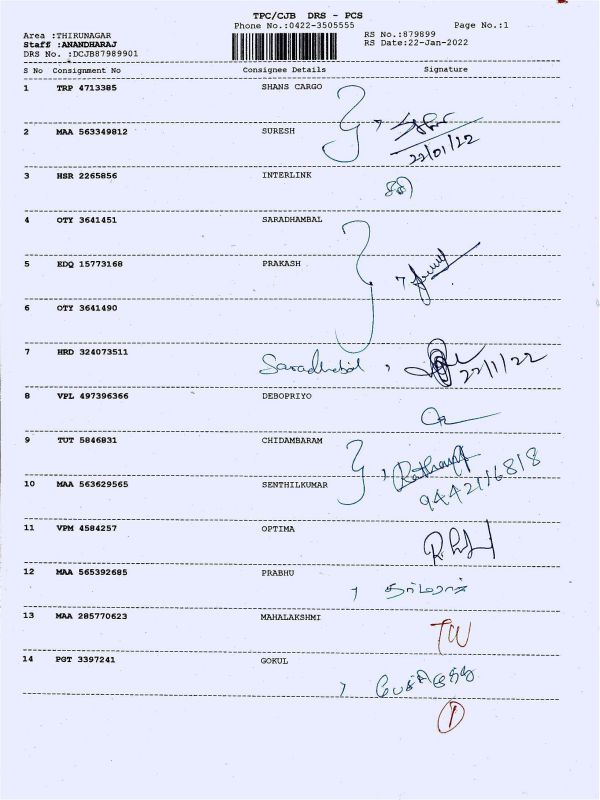 TPC/CJB DRS - PCS
Phone No.:0422-3505555 Page No.:1
Area :THIRUNAGAR RS No.:879899
Staff :ANANDHARAJ RS Date:22-Jan-2022
DRS No. :DCJB87989901
S No Consignment No Consignee Details Signature
1 TRP 4713385 SHANS CARGO
2 MAA 563349812 SURESH
22/01/22
3 HSR 2265856 INTERLINK
4 OTY 3641451 SARADHAMBAL
5 EDQ 15773168 PRAKASH
6 OTY 3641490
7 HRD 324073511 22/1/22
8 VPL 497396366 DEBOPRIYO
9 TUT 5846831 CHIDAMBARAM
10 MAA 563629565 SENTHILKUMAR
9442116818
11 VPM 4584257 OPTIMA
12 MAA 565392685 PRABHU
13 MAA 285770623 MAHALAKSHMI
TW
14 PGT 3397241 GOKUL
1